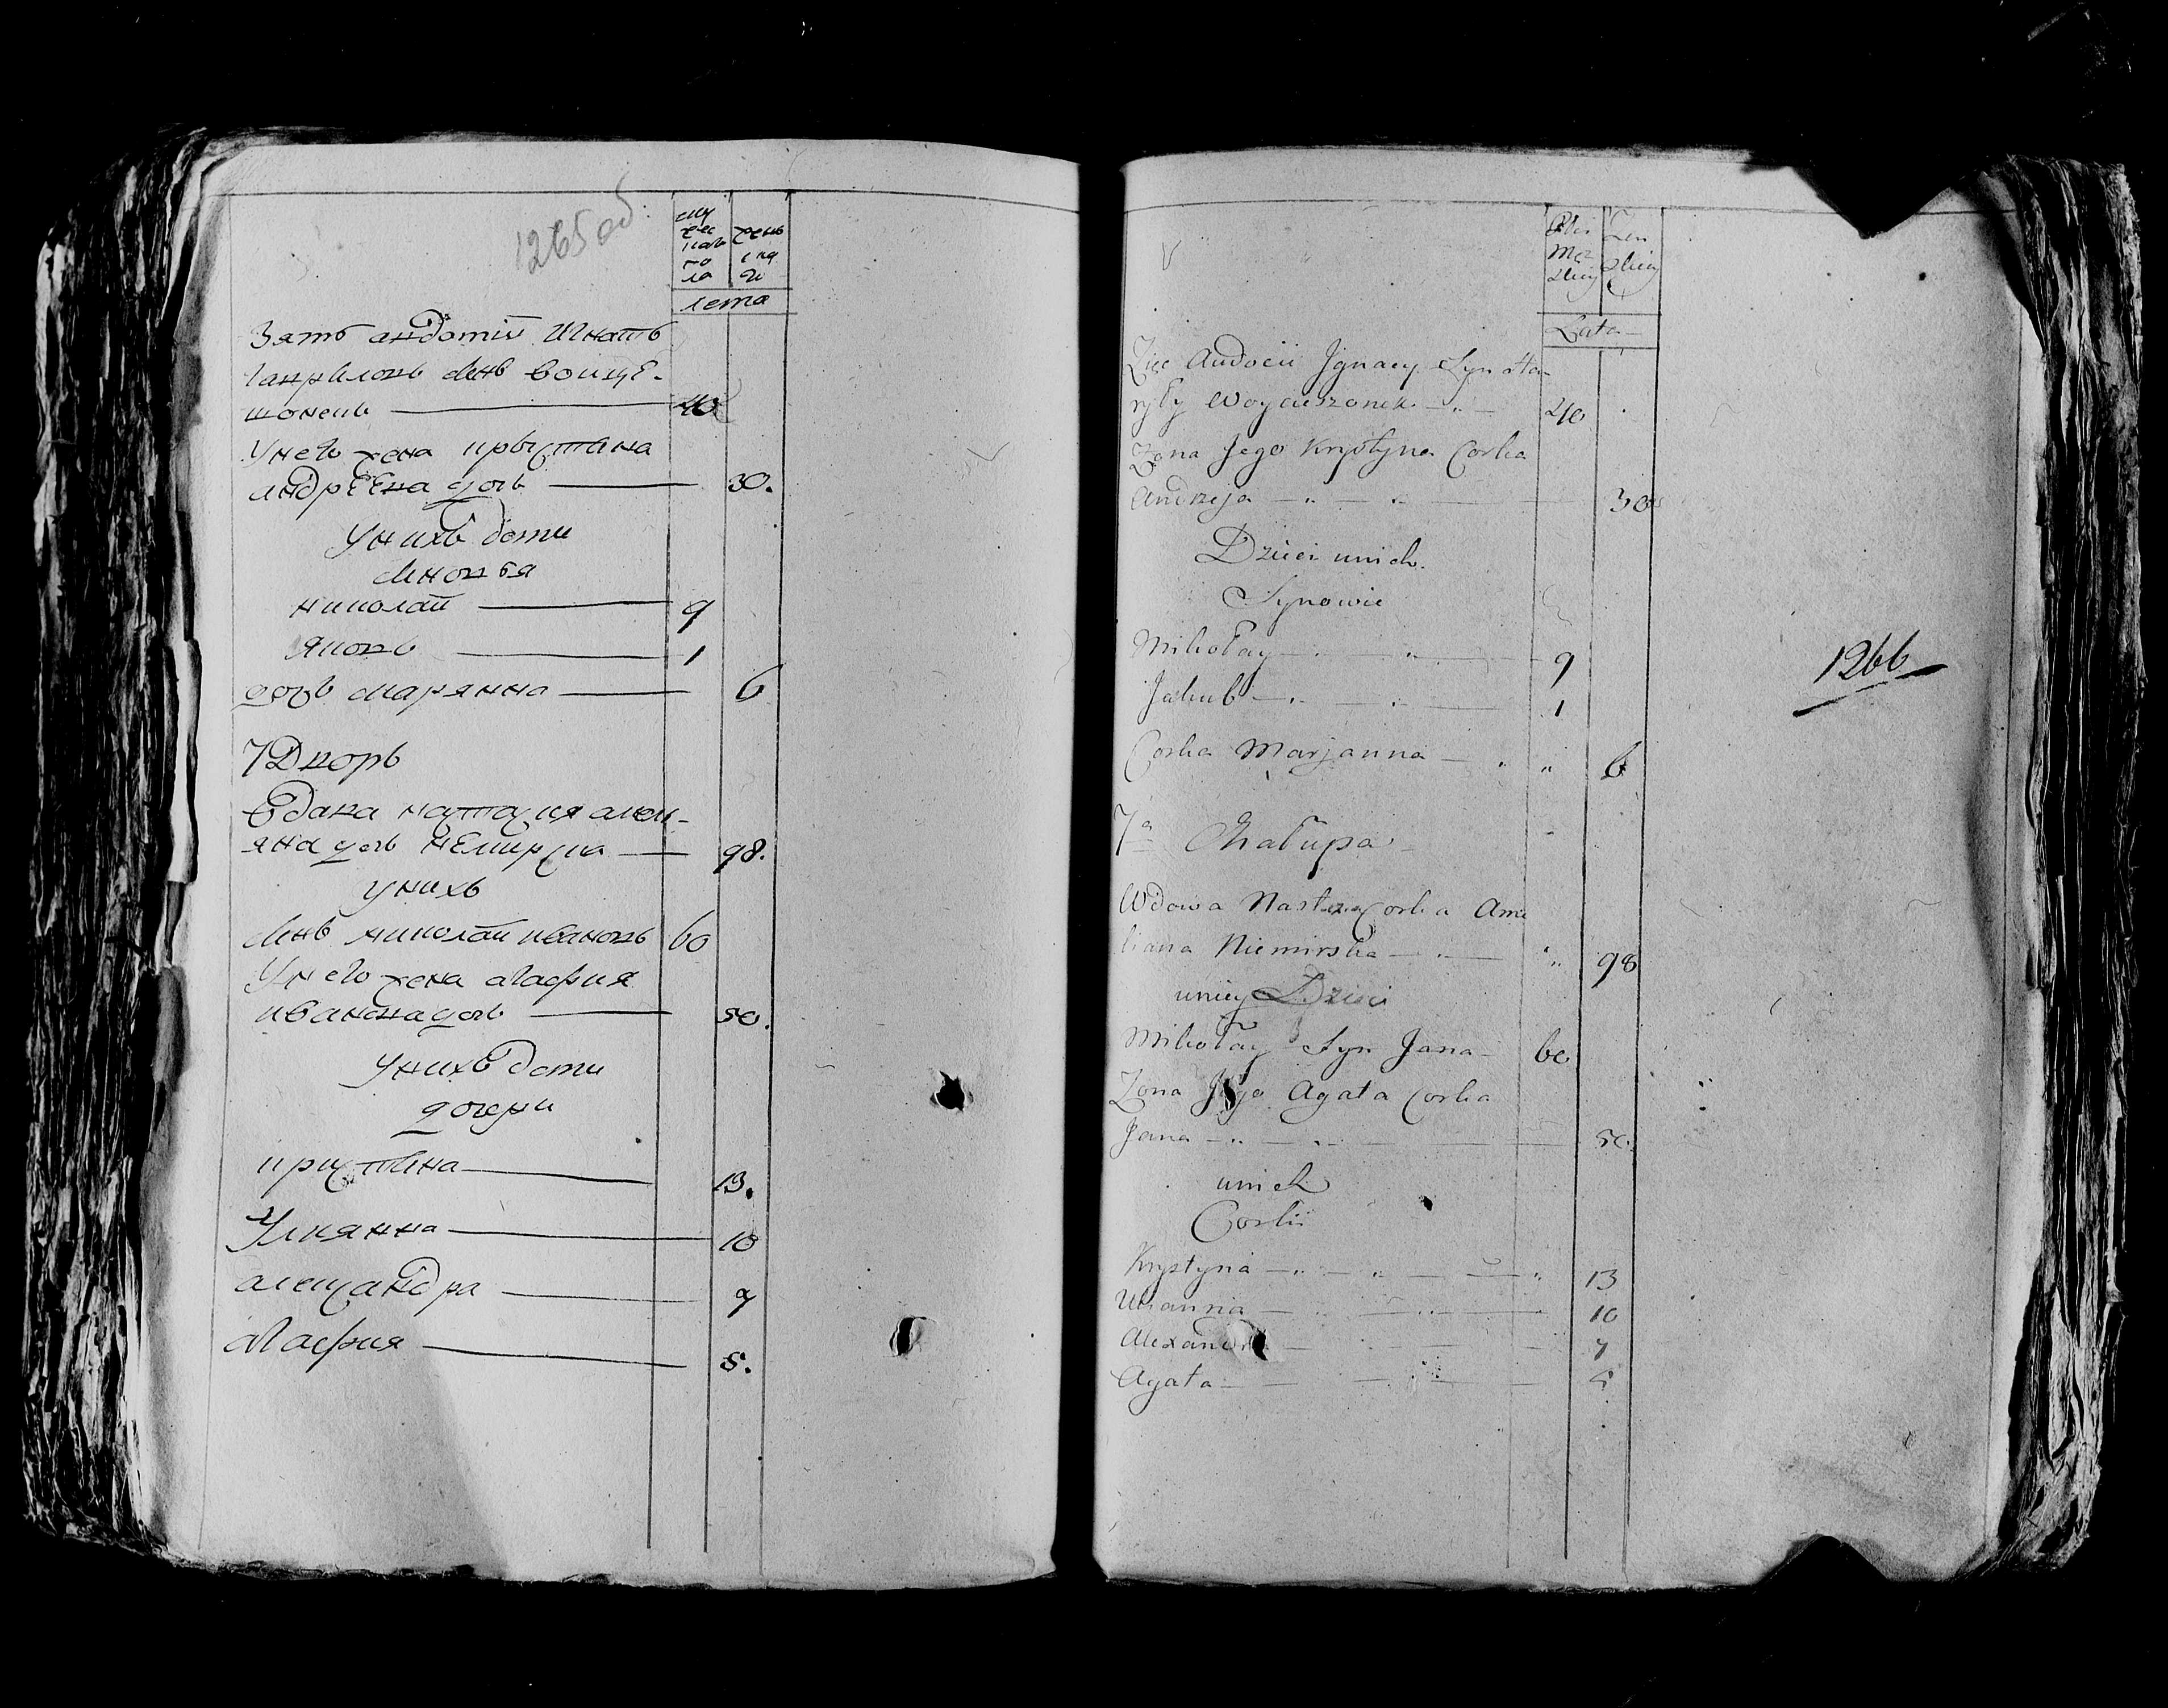 1265 об.
муж
еска
го
по
ла
женс
ска
го
лета
Зять авдотiи Игнатъ
гавриловъ синъ воицѣ-
шонекъ 40
У него жена крыстина
андрѣева дочь 30.
У нихъ дети
синовья
николай 9
яковъ 1
дочь марянна 6
7 Дворъ
вдова настасия амел-
яна дочь немирска 98.
у нихъ
синъ николай ивановъ 60
У него жена агафия
иванова дочь 50.
У нихъ дети
дочери
кристина 13.
Улиянна 10
александра 7
агафия 5.
Płci
Męz
kiey
Żen
skiey
Lata
Zięc Audocii Jgnacy Syn Ha-
ryły Woyciszonek 40
Zona Jego Krystyna Corka
Andrzeja 30
Dzieci unich.
Synowie
Mikołay 9
Jakub 1
Corka Marjanna 6
7a Chałupa
Wdowa Nastazia Corka Ame
liana Niemirska 98
uniey Dzieci
Mikołay Syn Jana 60
Zona Jego Agata Corka
Jana 50.
unich
Corki
Krystyna 13
Ulianna 10
Alexandra 7
Agata 5
1266